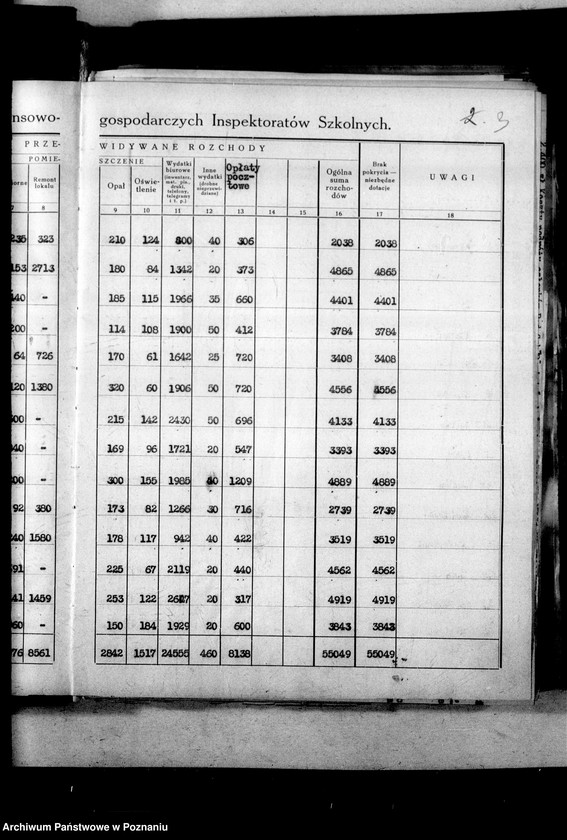 nsowo-
gospodarczych Inspektoratów Szkolnych.
2. 3
PRZE-
WIDYWANE ROZCHODY
POMIE-
SZCZENIE
orne
Remont lokalu
Opał
Oświe-tlenie
Wydatki biurowe
Inne wydatki
Opłaty pocz-towe
Ogólna suma rozcho-dów
Brak pokrycia — niezbędne dotacje
UWAGI
7 8 9 10 11 12 13 14 15 16 17 18
235 323 210 124 800 40 306 2038 2038
153 2713 180 84 1342 20 373 4865 4865
140 - 185 115 1966 35 660 4401 4401
200 - 114 108 1900 50 412 3784 3784
64 726 170 61 1642 25 720 3408 3408
120 1380 320 60 1906 50 720 4556 4556
00 - 215 142 2430 50 696 4133 4133
40 - 169 96 1721 20 547 3393 3393
00 - 300 155 1985 40 1209 4889 4889
92 380 173 82 1266 30 716 2739 2739
40 1580 178 117 942 40 422 3519 3519
91 - 225 67 2119 20 440 4562 4562
41 1459 253 122 20 317 4919 4919
60 - 150 184 1929 20 600 3843 3843
76 8561 2842 1517 24555 460 8138 55049 55049
Archiwum Państwowe w Poznaniu